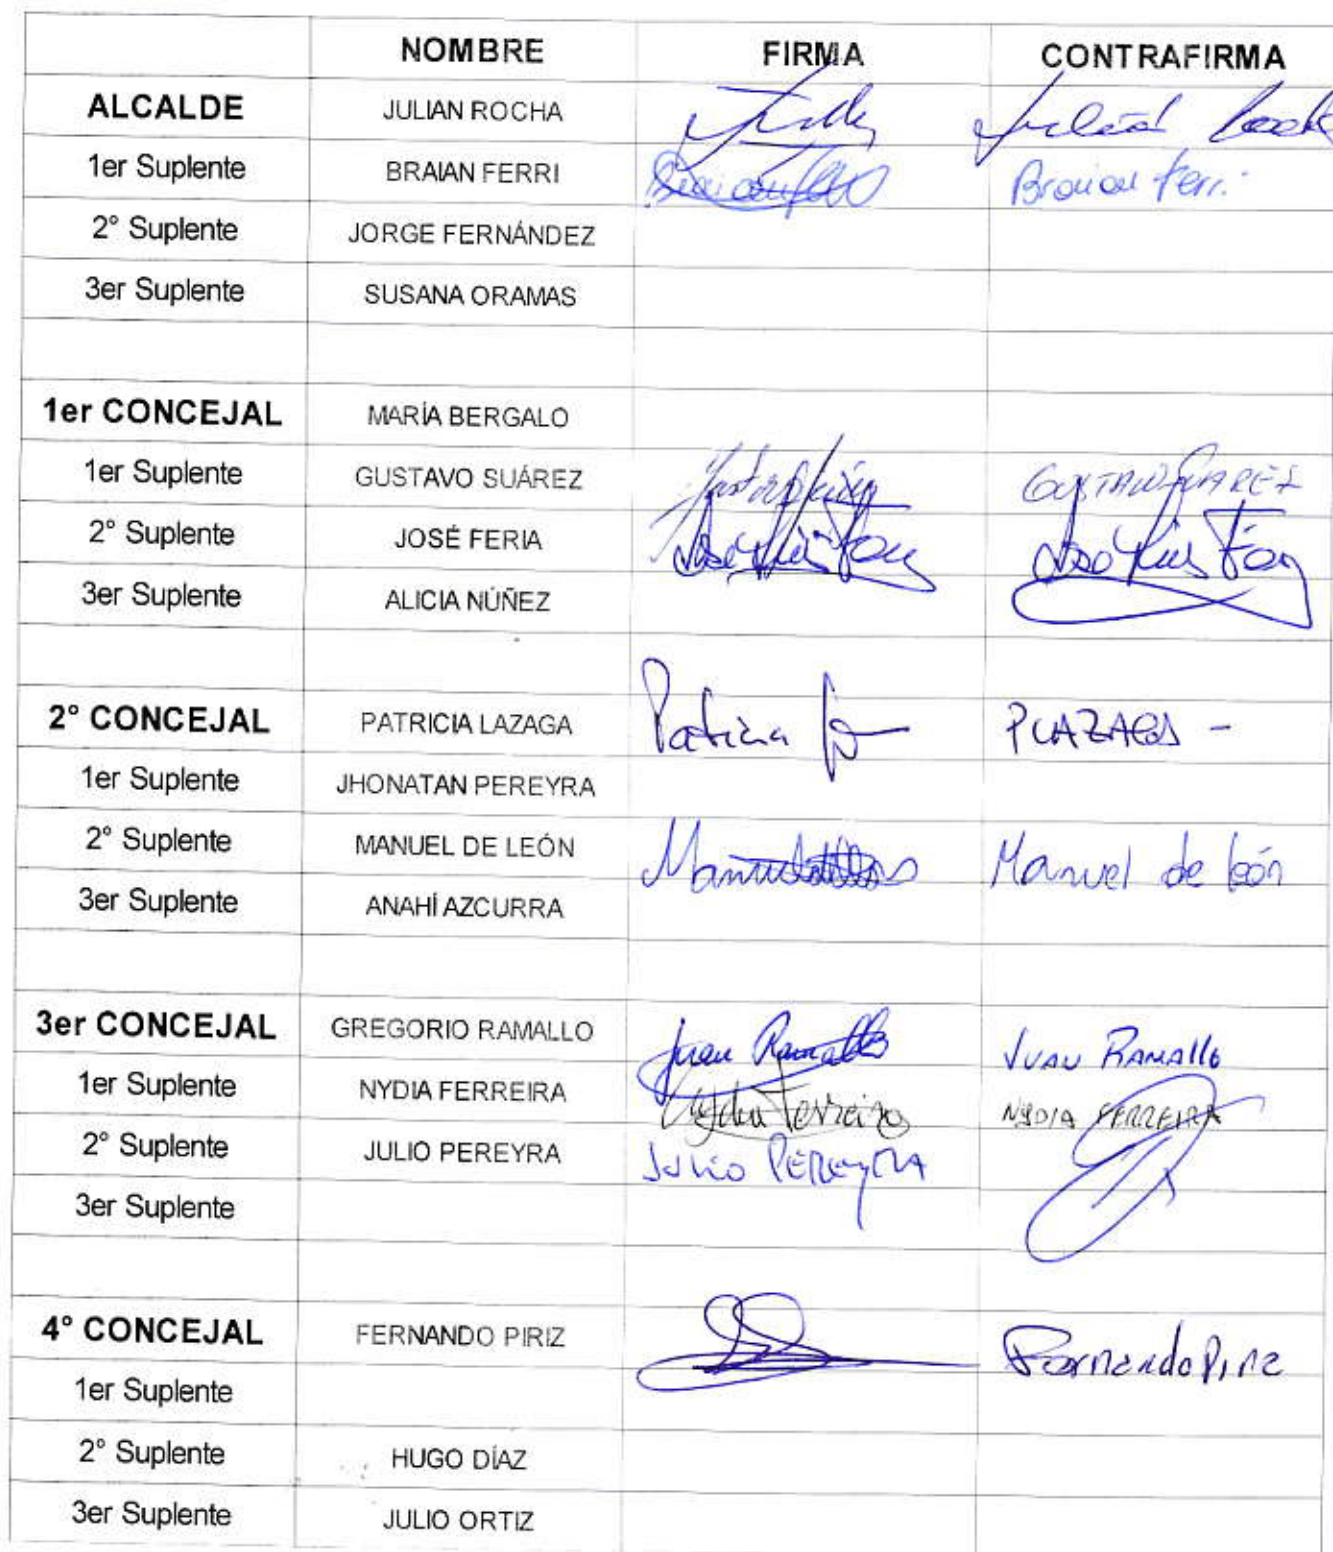 NOMBRE FIRMA CONTRAFIRMA
ALCALDE JULIAN ROCHA
1er Suplente BRAIAN FERRI Braian Ferri
2° Suplente JORGE FERNÁNDEZ
3er Suplente SUSANA ORAMAS
1er CONCEJAL MARÍA BERGALO
1er Suplente GUSTAVO SUÁREZ GUSTAVO SUAREZ
2° Suplente JOSÉ FERIA
3er Suplente ALICIA NÚÑEZ
2° CONCEJAL PATRICIA LAZAGA Patricia
1er Suplente JHONATAN PEREYRA
2° Suplente MANUEL DE LEÓN Manuel de león
3er Suplente ANAHÍ AZCURRA
3er CONCEJAL GREGORIO RAMALLO Juan Ramallo JUAN RAMALLO
1er Suplente NYDIA FERREIRA Nydia Ferreira NYDIA FERREIRA
2° Suplente JULIO PEREYRA JULIO PEREYRA
3er Suplente
4° CONCEJAL FERNANDO PIRIZ Fernando Piriz
1er Suplente
2° Suplente HUGO DÍAZ
3er Suplente JULIO ORTIZ